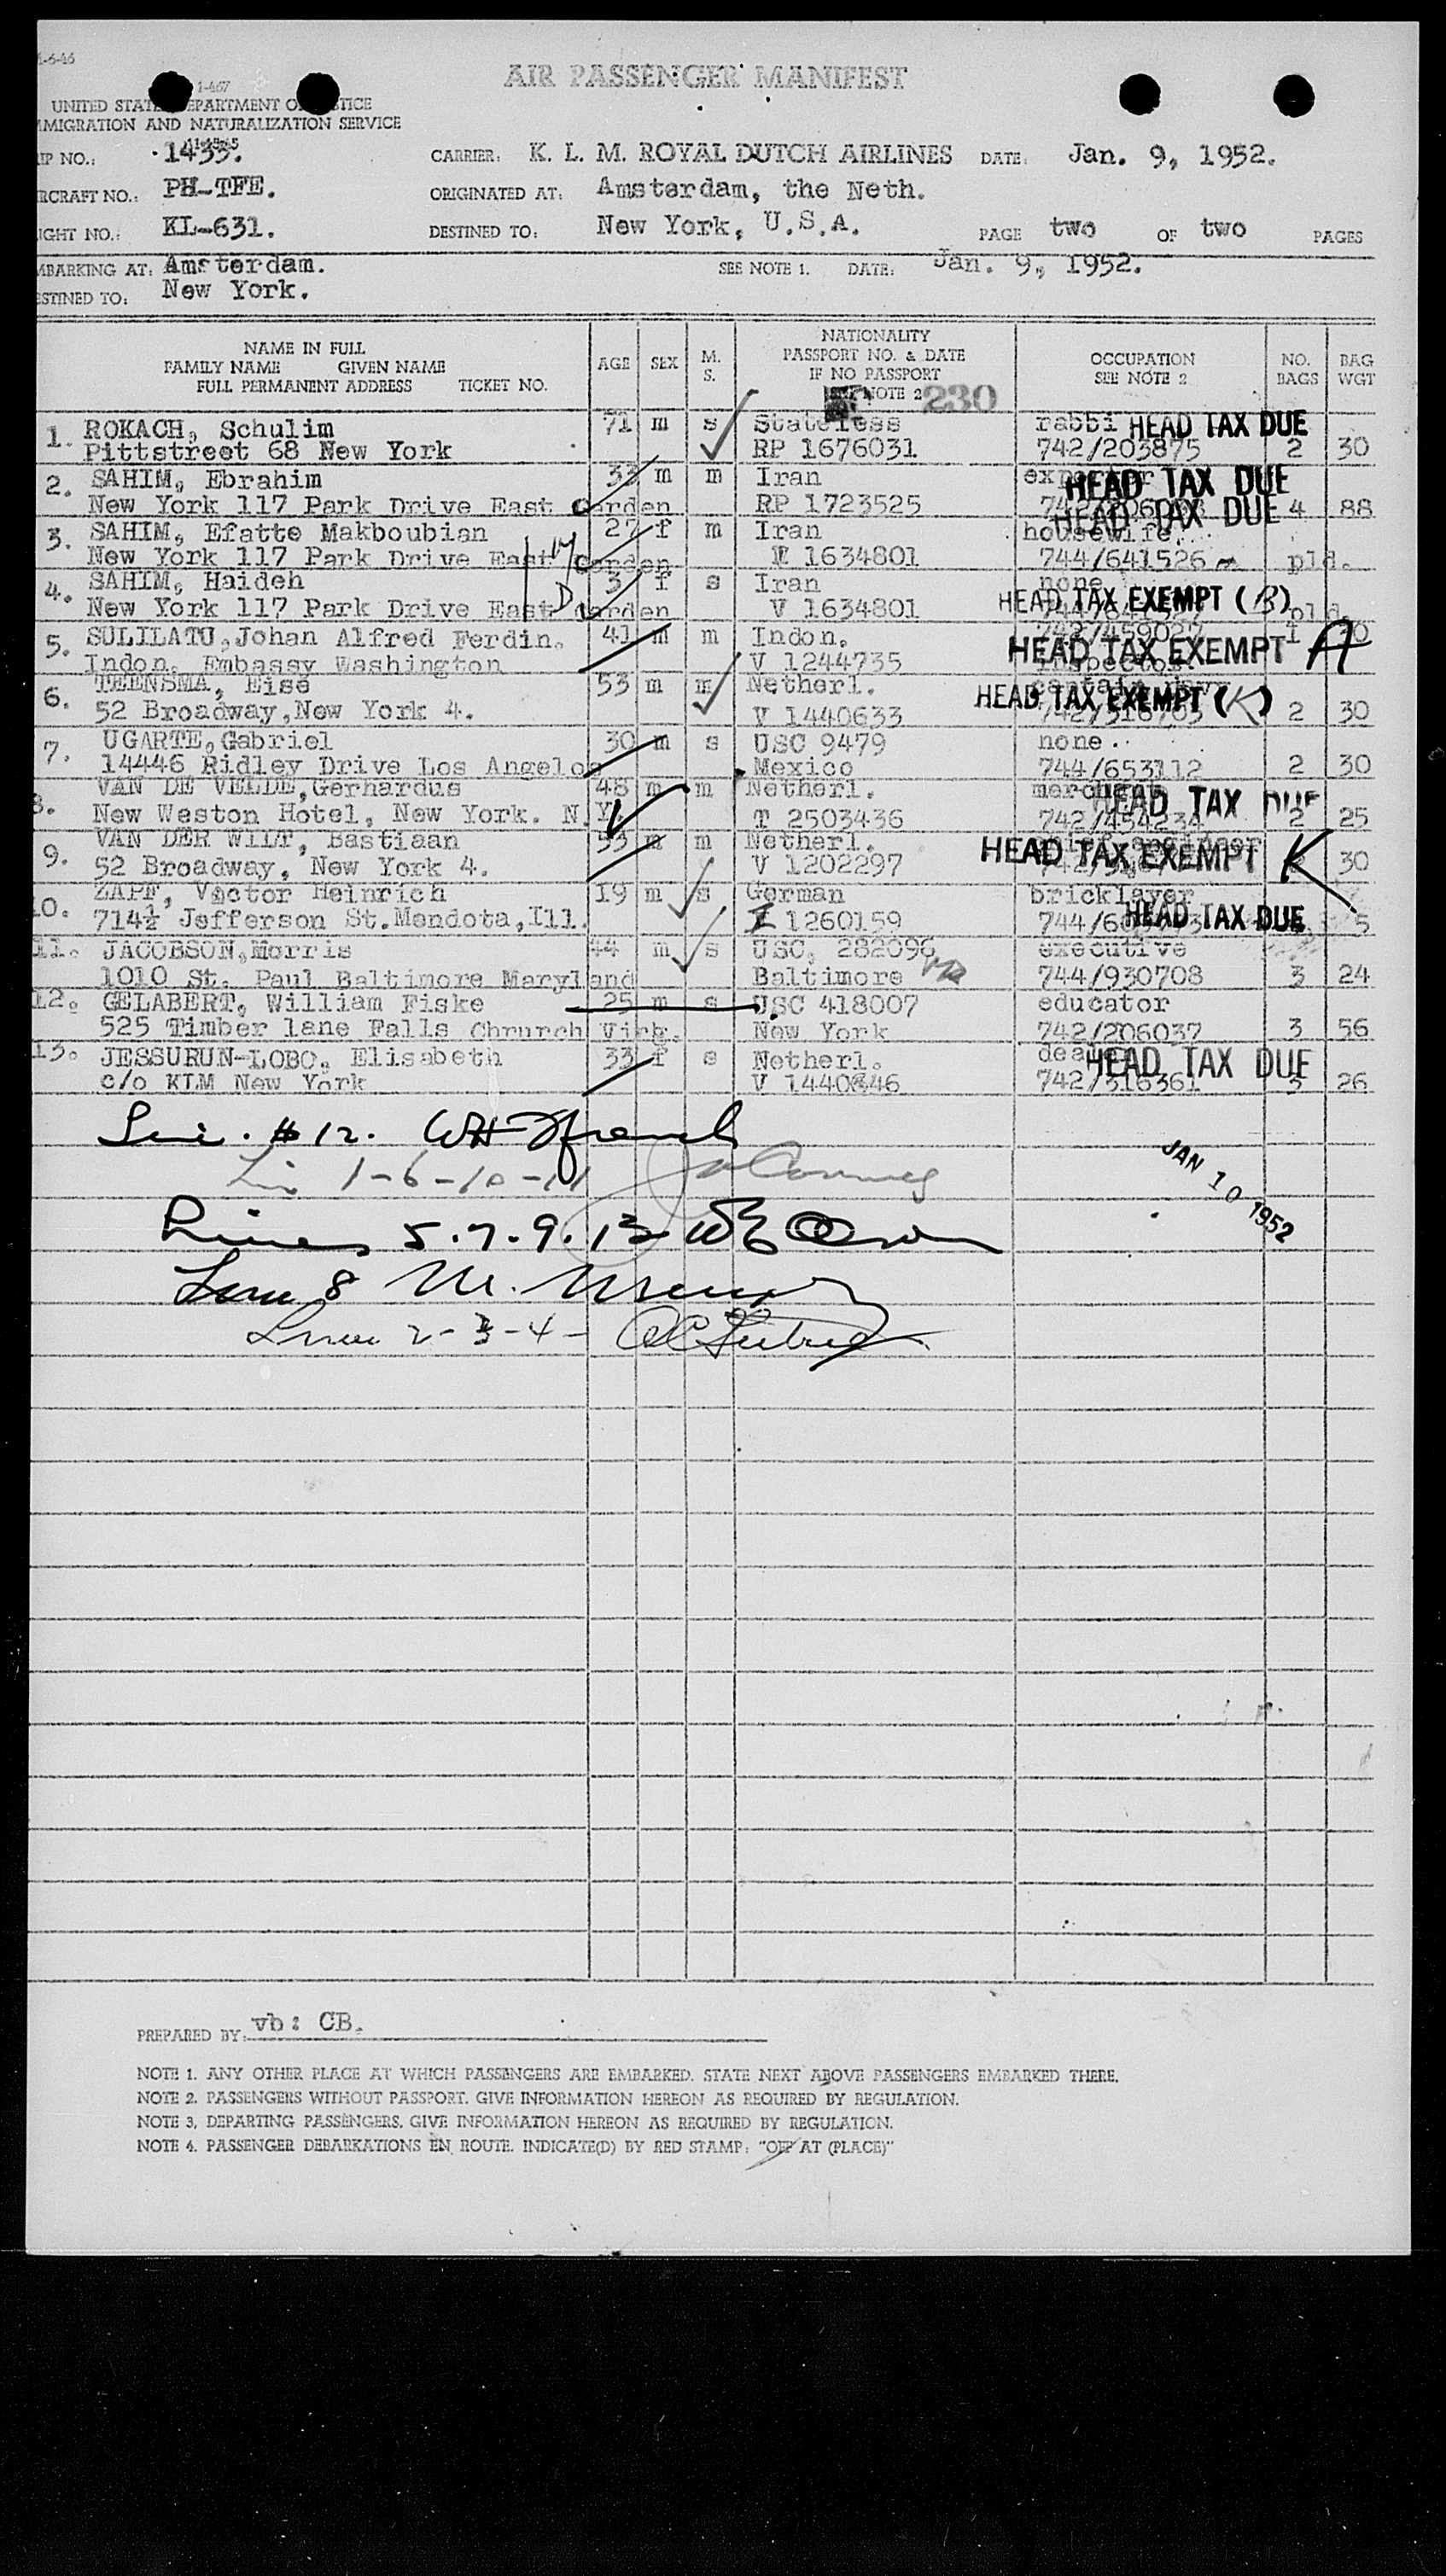 1-6-46
AIR PASSENGER MANIFEST
1-467
UNITED STATES DEPARTMENT OF JUSTICE
IMMIGRATION AND NATURALIZATION SERVICE
IP NO.: 1435. CARRIER: K. L. M. ROYAL DUTCH AIRLINES DATE: Jan. 9, 1952.
RCRAFT NO.: PH-TFE. ORIGINATED AT: Amsterdam, the Neth.
IGHT NO.: KL-631. DESTINED TO: New York, U.S.A. PAGE two OF two PAGES
MBARKING AT: Amsterdam. SEE NOTE 1. DATE: Jan. 9, 1952.
ESTINED TO: New York.
NAME IN FULL
FAMILY NAME GIVEN NAME
FULL PERMANENT ADDRESS TICKET NO.
AGE SEX M. S.
NATIONALITY
PASSPORT NO. & DATE
IF NO PASSPORT
NOTE 2 230
OCCUPATION
SEE NOTE 2
NO. BAGS
BAG WGT
1. ROKACH, Schulim 71 m s Stateless rabbi HEAD TAX DUE
Pittstreet 68 New York RP 1676031 742/203875 2 30
2. SAHIM, Ebrahim 33 m m Iran HEAD TAX DUE
New York 117 Park Drive East Garden RP 1723525 4 88
3. SAHIM, Efatte Makboubian 27 f m Iran housewife. HEAD TAX DUE
New York 117 Park Drive East Garden 1634801 744/641526 pld.
4. SAHIM, Haideh 3 f s Iran none
New York 117 Park Drive East Garden V 1634801 HEAD TAX EXEMPT (B) pld.
5. SULILATU, Johan Alfred Ferdin. 41 m m Indon. 742/459027 1
Indon. Embassy Washington V 1244735 inspector HEAD TAX EXEMPT A
6. TEENSMA, Eise 53 m m Netherl.
52 Broadway, New York 4. V 1440633 HEAD TAX EXEMPT (K) 2 30
7. UGARTE, Gabriel 30 m s USC 9479 none
14446 Ridley Drive Los Angelos Mexico 744/653112 2 30
8. VAN DE VELDE, Gerhardus 48 m m Netherl. merchant HEAD TAX DUE
New Weston Hotel, New York. N.Y. T 2503436 742/454234 2 25
9. VAN DER WILT, Bastiaan 53 m m Netherl.
52 Broadway, New York 4. V 1202297 HEAD TAX EXEMPT K 30
10. ZAPF, Vector Heinrich 19 m s German bricklayer
714½ Jefferson St. Mendota, Ill. I 1260159 HEAD TAX DUE 5
11. JACOBSON, Morris 44 m s USC, 282096 executive
1010 St. Paul Baltimore Maryland Baltimore 744/930708 3 24
12. GELABERT, William Fiske 25 m s USC 418007 educator
525 Timber lane Falls Chrurch Virg. New York 742/206037 3 56
13. JESSURUN-LOBO, Elisabeth 33 f s Netherl. HEAD TAX DUE
c/o KLM New York V 1440846 742/316361 3 26
#12.
1-6-10-11
JAN 10 1952
Lines 5.7.9.13
8
2-3-4-
PREPARED BY: vb: CB.
NOTE 1. ANY OTHER PLACE AT WHICH PASSENGERS ARE EMBARKED. STATE NEXT ABOVE PASSENGERS EMBARKED THERE.
NOTE 2. PASSENGERS WITHOUT PASSPORT. GIVE INFORMATION HEREON AS REQUIRED BY REGULATION.
NOTE 3. DEPARTING PASSENGERS. GIVE INFORMATION HEREON AS REQUIRED BY REGULATION.
NOTE 4. PASSENGER DEBARKATIONS EN ROUTE. INDICATE(D) BY RED STAMP: "OFF AT (PLACE)"